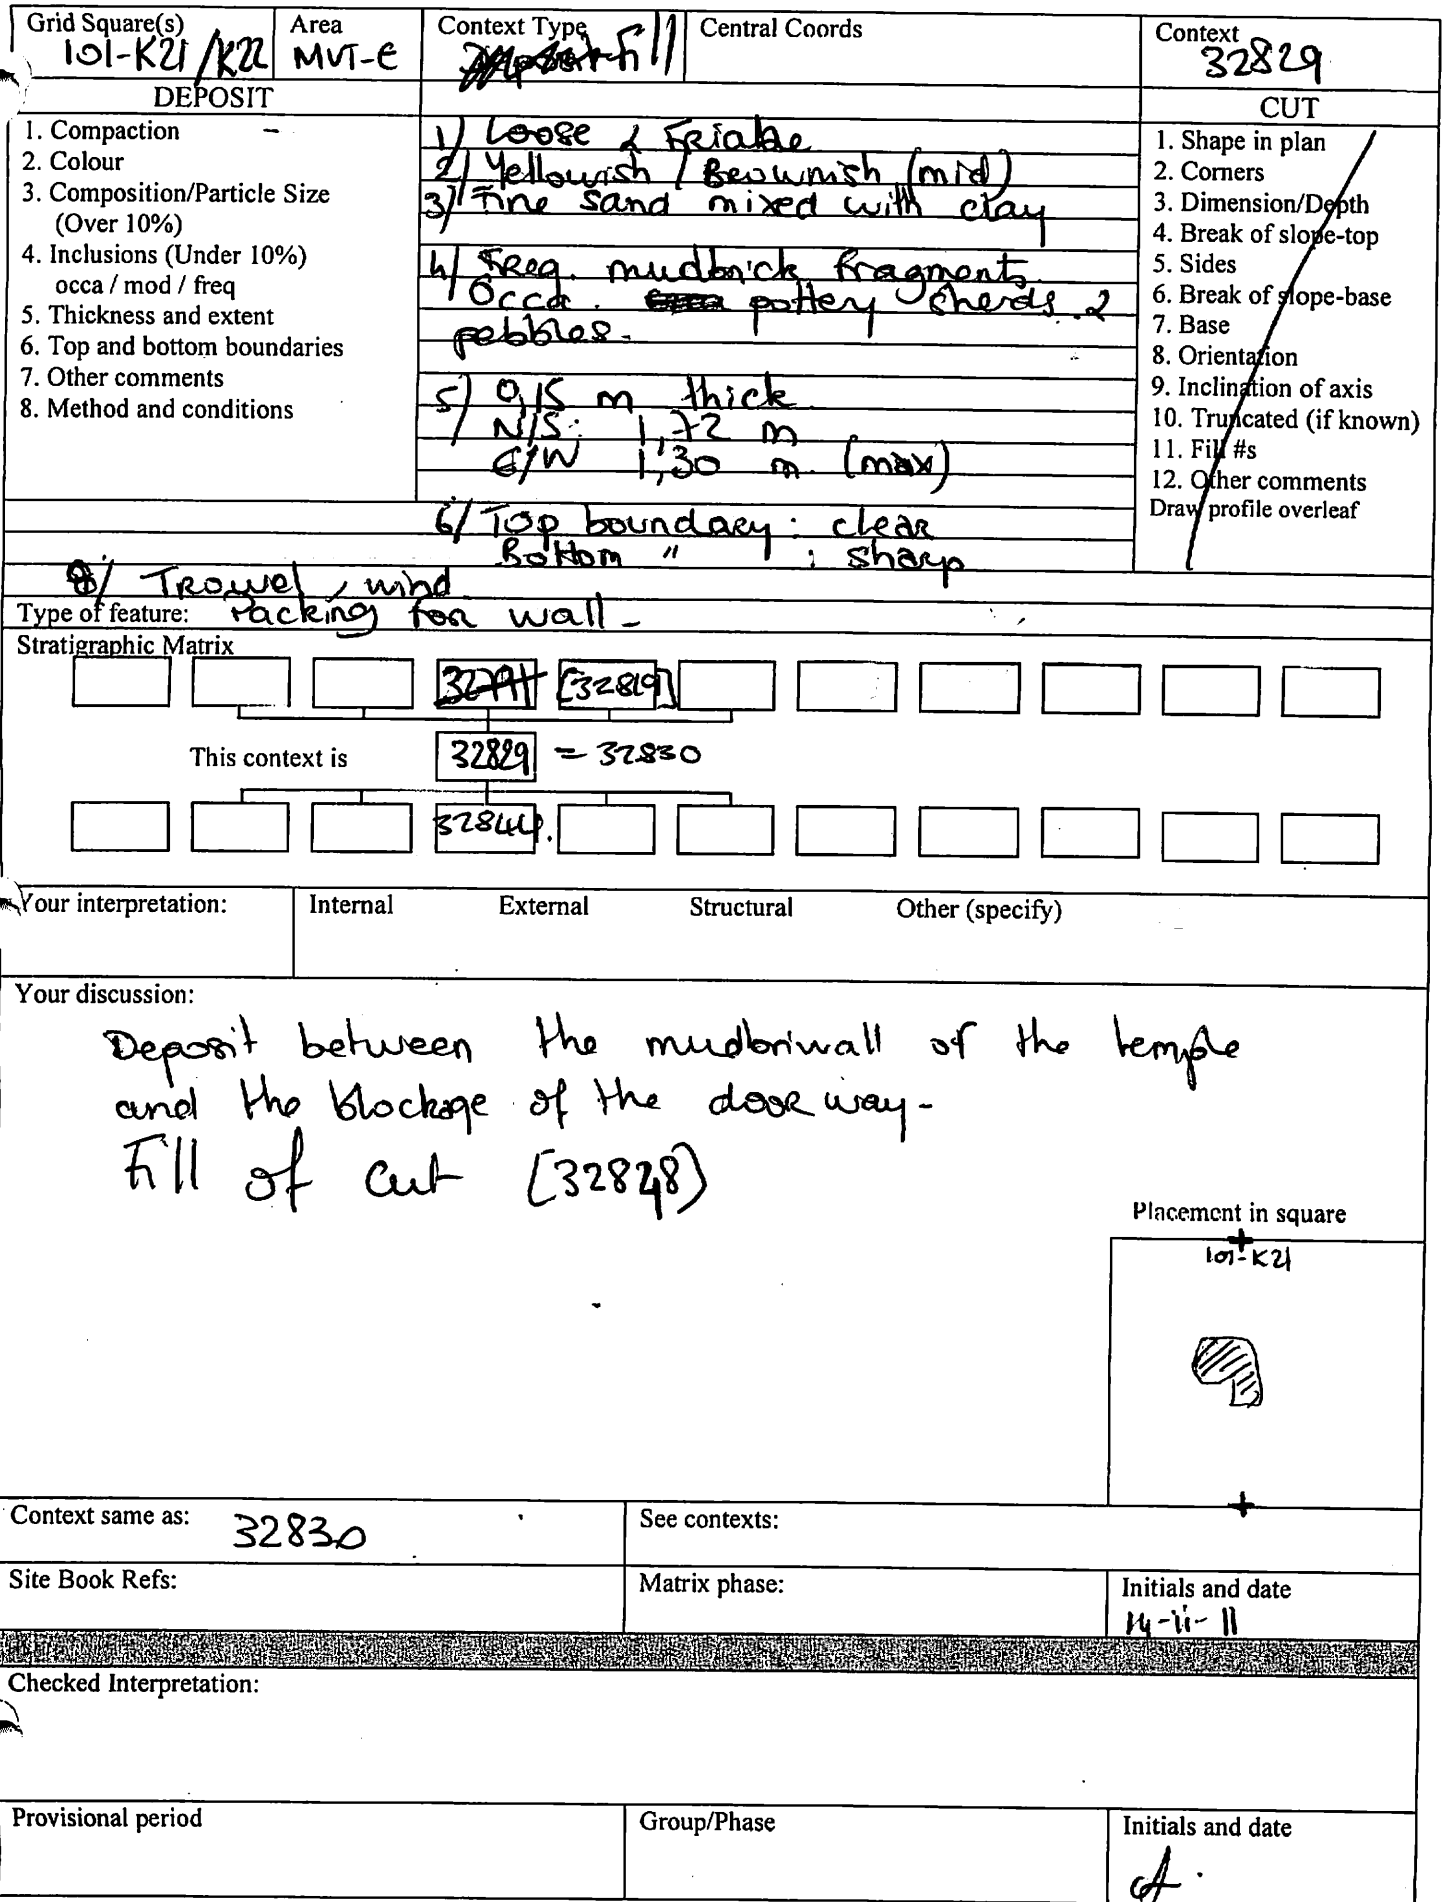 Grid Square(s)
101-K21/K22
Area
MVT-E
Context Type
Fill
Central Coords
Context
32829
DEPOSIT
CUT
1. Compaction -
2. Colour
3. Composition/Particle Size
(Over 10%)
4. Inclusions (Under 10%)
occa / mod / freq
5. Thickness and extent
6. Top and bottom boundaries
7. Other comments
8. Method and conditions
1/ Loose & Friable
2/ Yellowish / Brownish (mid)
3/ Fine sand mixed with clay
4/ Freq. mudbrick fragments.
Occa. pottery sherds &
pebbles.
5/ 0,15 m thick
N/S: 1,72 m
E/W 1,30 m (max)
6/ Top boundary: clear
Bottom " : sharp
8/ Trowel, wind
1. Shape in plan
2. Corners
3. Dimension/Depth
4. Break of slope-top
5. Sides
6. Break of slope-base
7. Base
8. Orientation
9. Inclination of axis
10. Truncated (if known)
11. Fill #s
12. Other comments
Draw profile overleaf
Type of feature: Packing for wall -
Stratigraphic Matrix
[32819]
This context is 32829 = 32830
32844.
Your interpretation: Internal External Structural Other (specify)
Your discussion:
Deposit between the mudbriwall of the temple
and the blockage of the doorway-
Fill of cut [32828)
Placement in square
101-K21
Context same as: 32830
See contexts:
Site Book Refs:
Matrix phase:
Initials and date
14-ii-11
Checked Interpretation:
Provisional period
Group/Phase
Initials and date